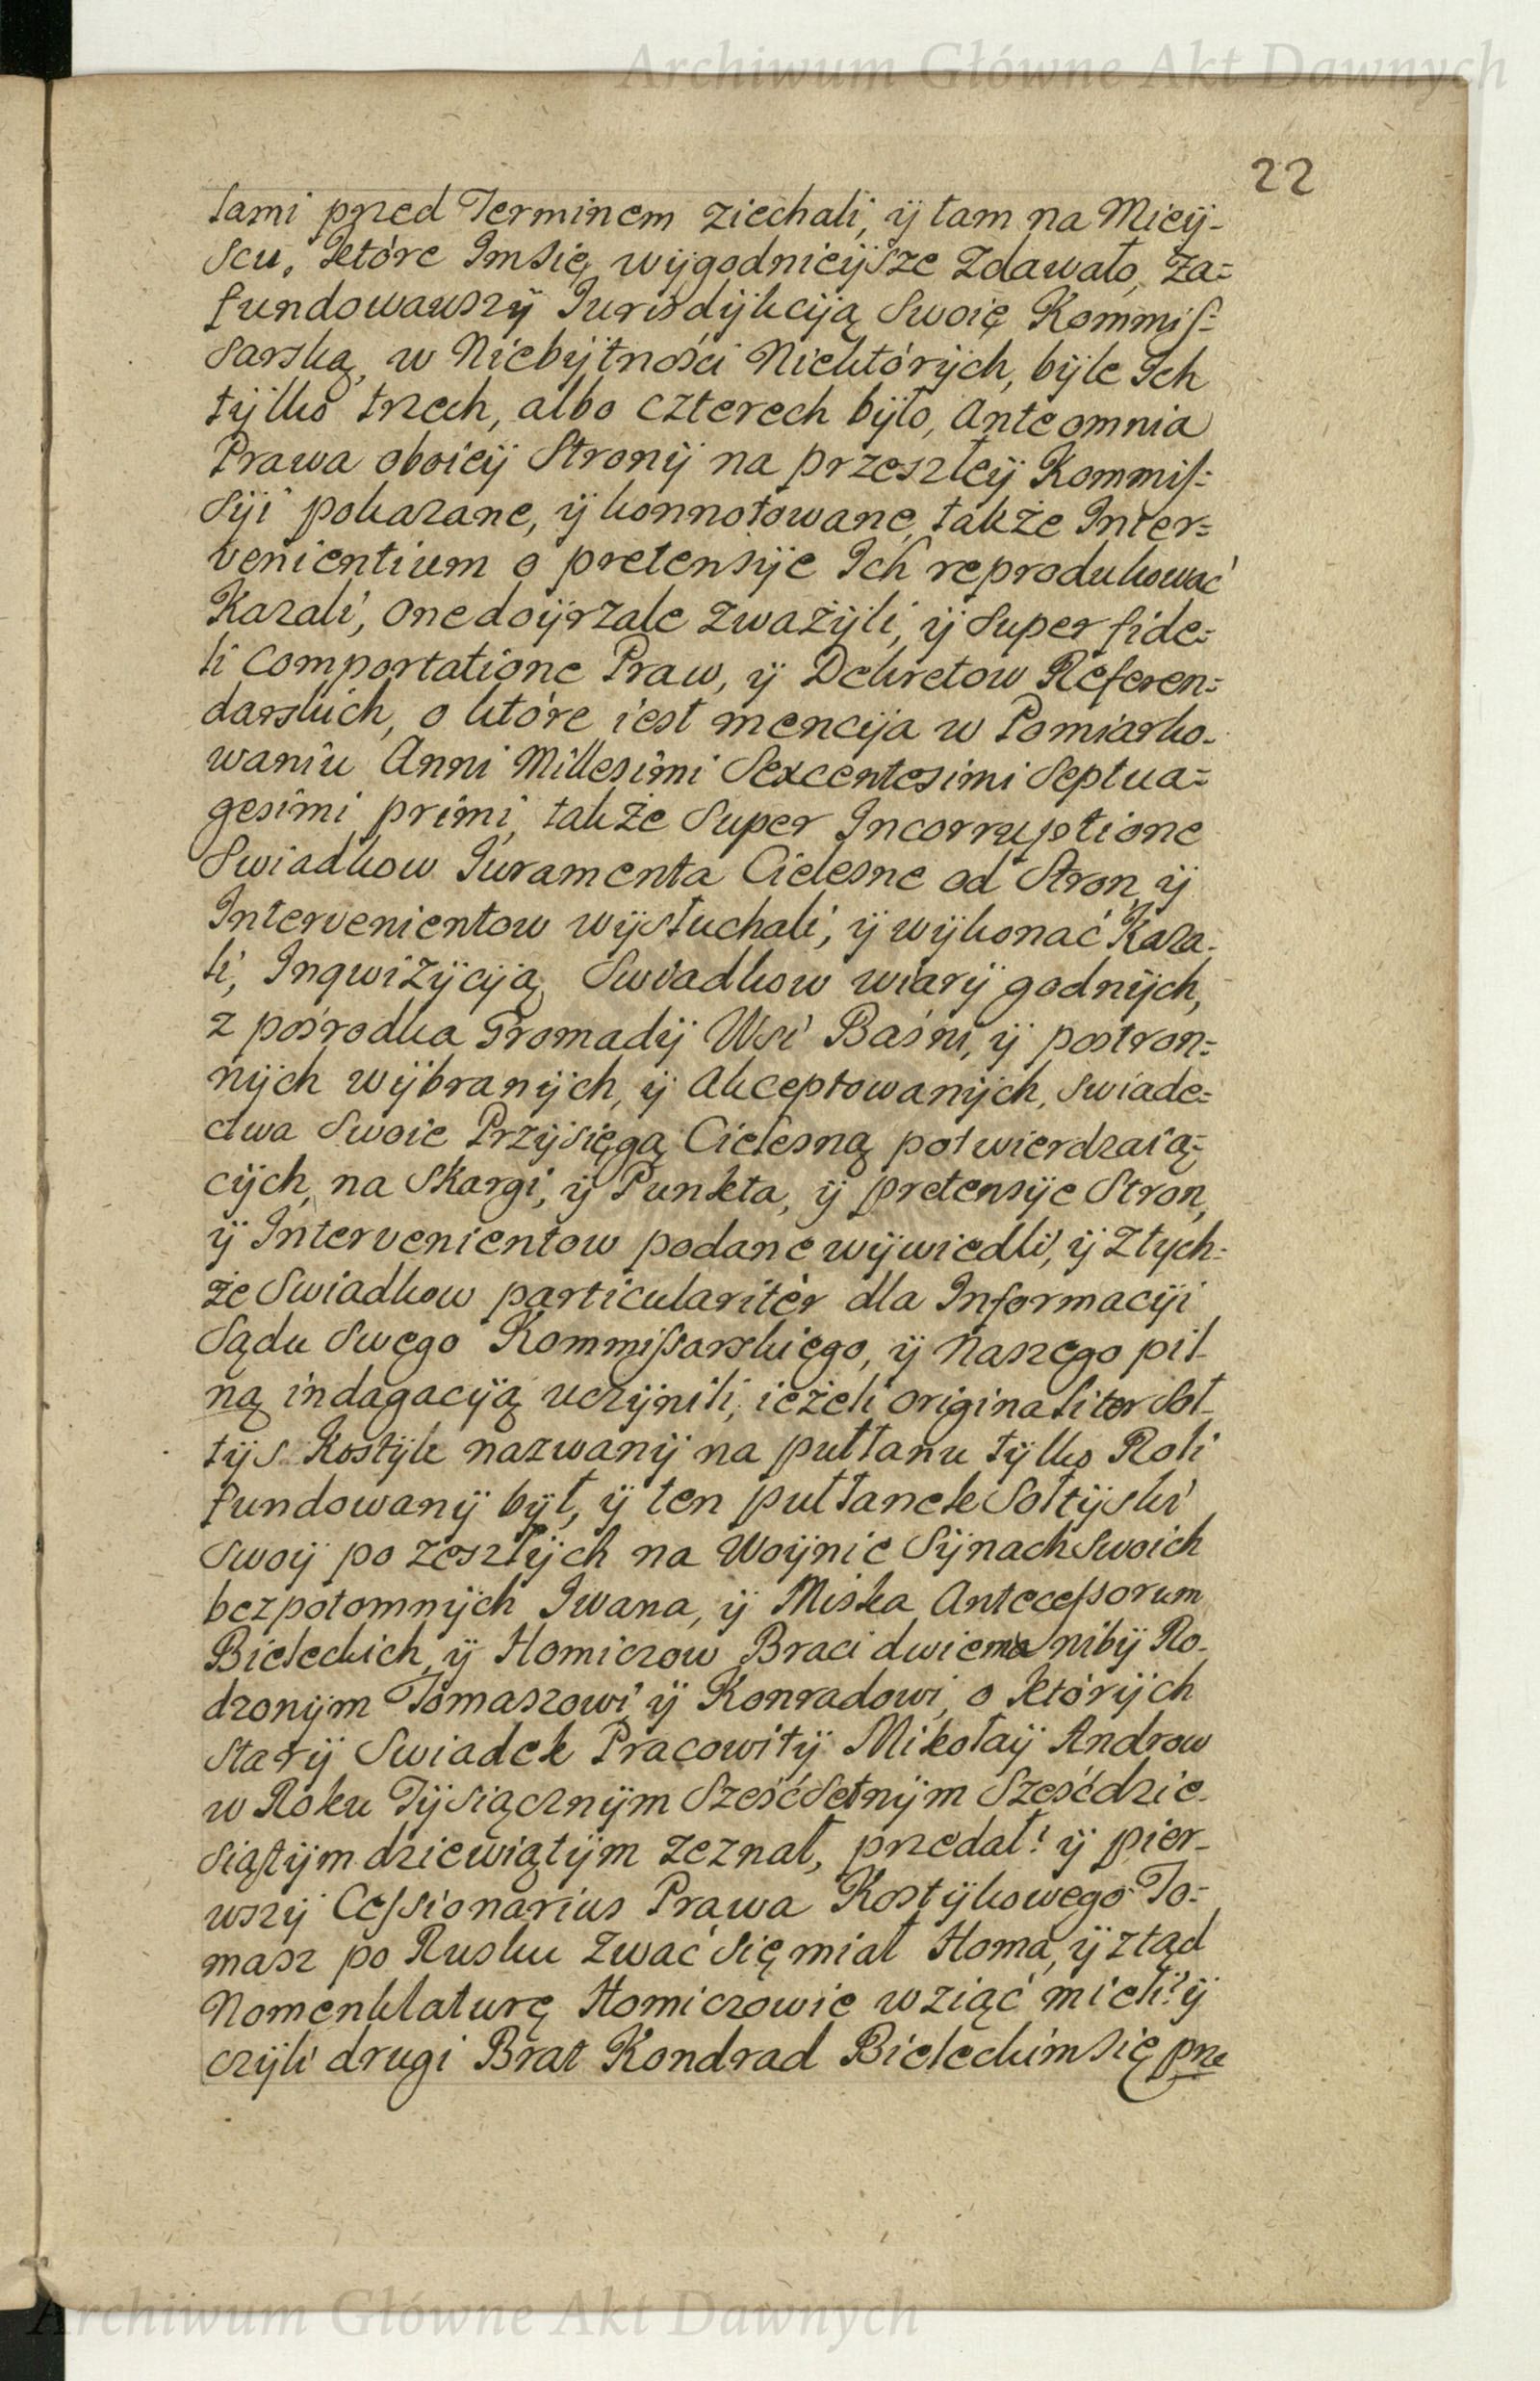 Archiwum Główne Akt Dawnych
22
tami przed Terminem ziechali, ÿ tam na Mieÿ-
scu, które Imsię wÿgodnieÿsze Zdawało, Za=
fundowawszÿ Jurisdÿkciją Swoię Kommis=
sarską, w Niebÿtności Niektórÿch, bÿle Ich
tÿlko trzech, albo czterech bÿło, Anteomnia
Prawa oboieÿ Stronÿ na przeszłeÿ Kommis=
siji pokazane, ÿ konnotowane, także Inter=
venientium o pretensije Ich reprodukować
Kazali, one doÿrzale zważÿli, ÿ Super fide=
li Comportatione Praw, ÿ Dekretow Referen=
darskich, o które iest mencija w Pomiarko-
waniu Anni Millesimi Sexcentesimi Septua=
gesimi primi, także Super Incorruptione
Swiadkow Juramenta Cielesne od Stron, ÿ
Intervenientow wÿsłuchali, ÿ wÿkonać Kaza-
li, Inqwizÿciją Swiadkow wiarÿ godnÿch,
z pośrodka Gromadÿ Wsi Baśni, ÿ postron=
nÿch wÿbranÿch, ÿ Akceptowanÿch, swiade=
ctwa Swoie Przÿsięgą Cielesną potwierdzaią=
cÿch, na Skargi, ÿ Punkta, ÿ pretensije Stron,
ÿ Intervenientow podane wÿwiedli, ÿ Ztych=
że Swiadkow particularitèr dla Informaciji
Sądu Swego Kommissarskiego, ÿ Naszego pil-
ną indagaciją uczÿnili, ieżeli originaliter Soł-
tÿs Kostÿk nazwanÿ na pułłanu tÿlko Roli
fundowanÿ bÿł, ÿ ten pułłanek Sołtÿski
Swoÿ po zeszłÿch na Woÿnie Sÿnach Swoich
bezpotomnÿch Iwana, ÿ Miska Antecessorum
Bieleckich, ÿ Homiczow Braci dwiema nibÿ Ro-
dzonÿm Tomaszowi, ÿ Konradowi, o którÿch
Starÿ Swiadek Pracowitÿ Mikołaÿ Androw
w Roku Tÿsiącznÿm Sześćsetnÿm Sześćdzie-
siątÿm dziewiątÿm zeznał, przedał? ÿ pier-
wszÿ Cessionarius Prawa Kostÿkowego To=
masz po Rusku Zwać się miał Homa, ÿ ztąd
Nomenklaturę Homiczowie wziąć mieli? ÿ
czÿli drugi Brat Kondrad Bieleckim się prze
Archiwum Główne Akt Dawnych